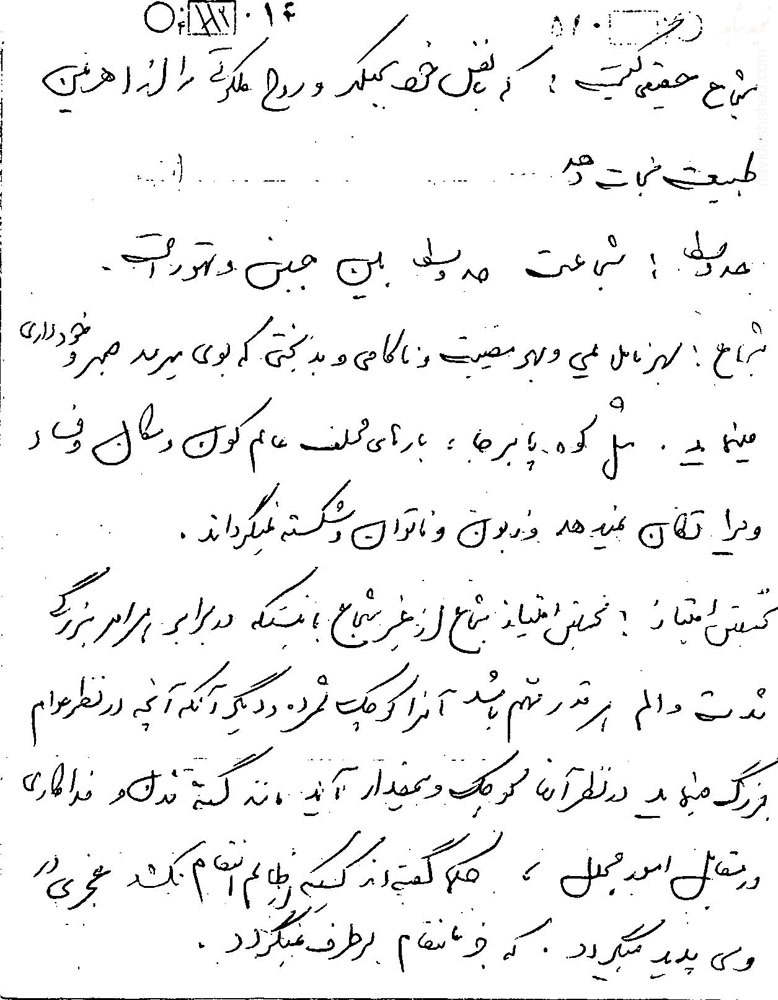 شجاع حقیقی کیست ؛ که با نفس خود بجنگد و روح ملکوتی را از اهریمن
طبیعت نجات دهد
حد وسط ؛ شجاعت حد وسط بین جبن و تهور است .
شجاع ؛ بهر ناملایمی و بهر مصیبت و ناکامی و بدبختی که بوی برسد صبر و خودداری
مینماید . مثل کوه پابرجا ؛ بارهای مختلف عالم کون و مکان و فساد
ویرا تکان نمیدهد و زبون و ناتوان و شکسته نمیگرداند .
نخستین امتیاز ؛ نخستین امتیاز شجاع از غیر شجاع باینستکه در برابر هر امر بزرگی
شدت و الم هر قدر مهم باشد آنرا کوچک شمرده و دیگر آنکه آنچه در نظر عوام
بزرگ مینماید در نظر آنها کوچک و بیمقدار آید مانند کشته شدن و فداکاری
در مقابل امور مجلل ، حکما گفته‌اند کسیکه از ظالم انتقام نکشد عجزی در
وی پدید میگردد . که جز بانتقام برطرف نمیگردد .